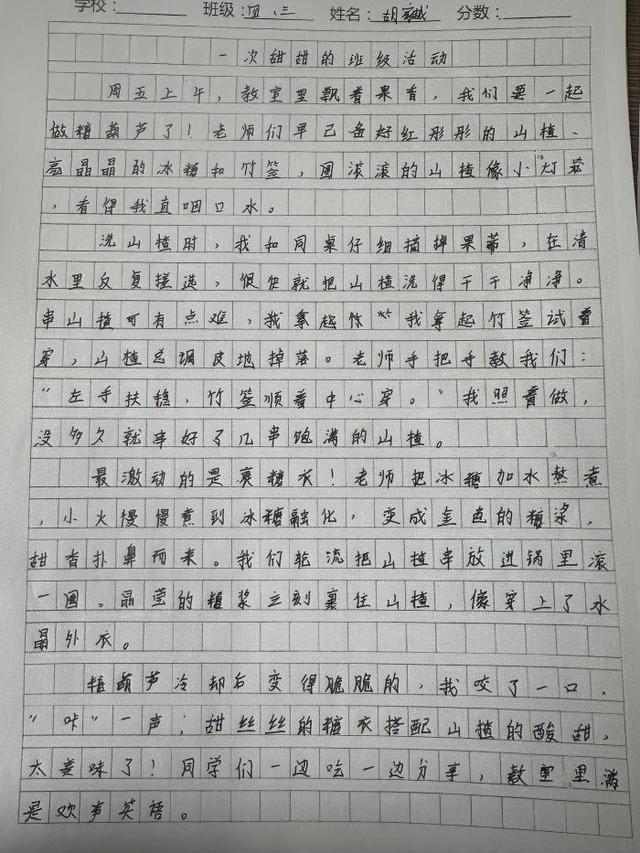 学校： 班级：四、三 姓名：胡 分数：
一次甜甜的班级活动
周五上午，教室里飘着果香，我们要一起
做糖葫芦了！老师们早已备好红彤彤的山楂、
亮晶晶的冰糖和竹签，圆滚滚的山楂像小灯笼
，看得我直咽口水。
洗山楂时，我和同桌仔细摘掉果蒂，在清
水里反复搓选，很快就把山楂洗得干干净净。
串山楂可有点难，我拿起竹 我拿起竹签试着
穿，山楂总调皮地掉落。老师手把手教我们：
“左手扶稳，竹签顺着中心穿。”我照着做，
没多久就串好了几串饱满的山楂。
最激动的是裹糖衣！老师把冰糖加水熬煮
，小火慢慢煮到冰糖融化，变成金色的糖浆，
甜香扑鼻而来。我们轮流把山楂串放进锅里滚
一圈，晶莹的糖浆立刻裹住山楂，像穿上了水
晶外衣。
糖葫芦冷却后变得脆脆的，我咬了一口，
“咔”一声；甜丝丝的糖衣搭配山楂的酸甜，
太美味了！同学们一边吃一边分享，教室里满
是欢声笑语。